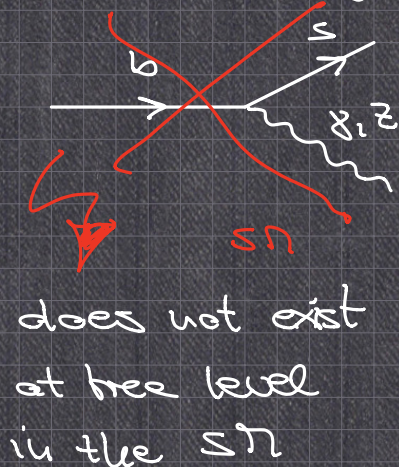 s
b
γ, Z
SM
does not exist
at tree level
in the SM